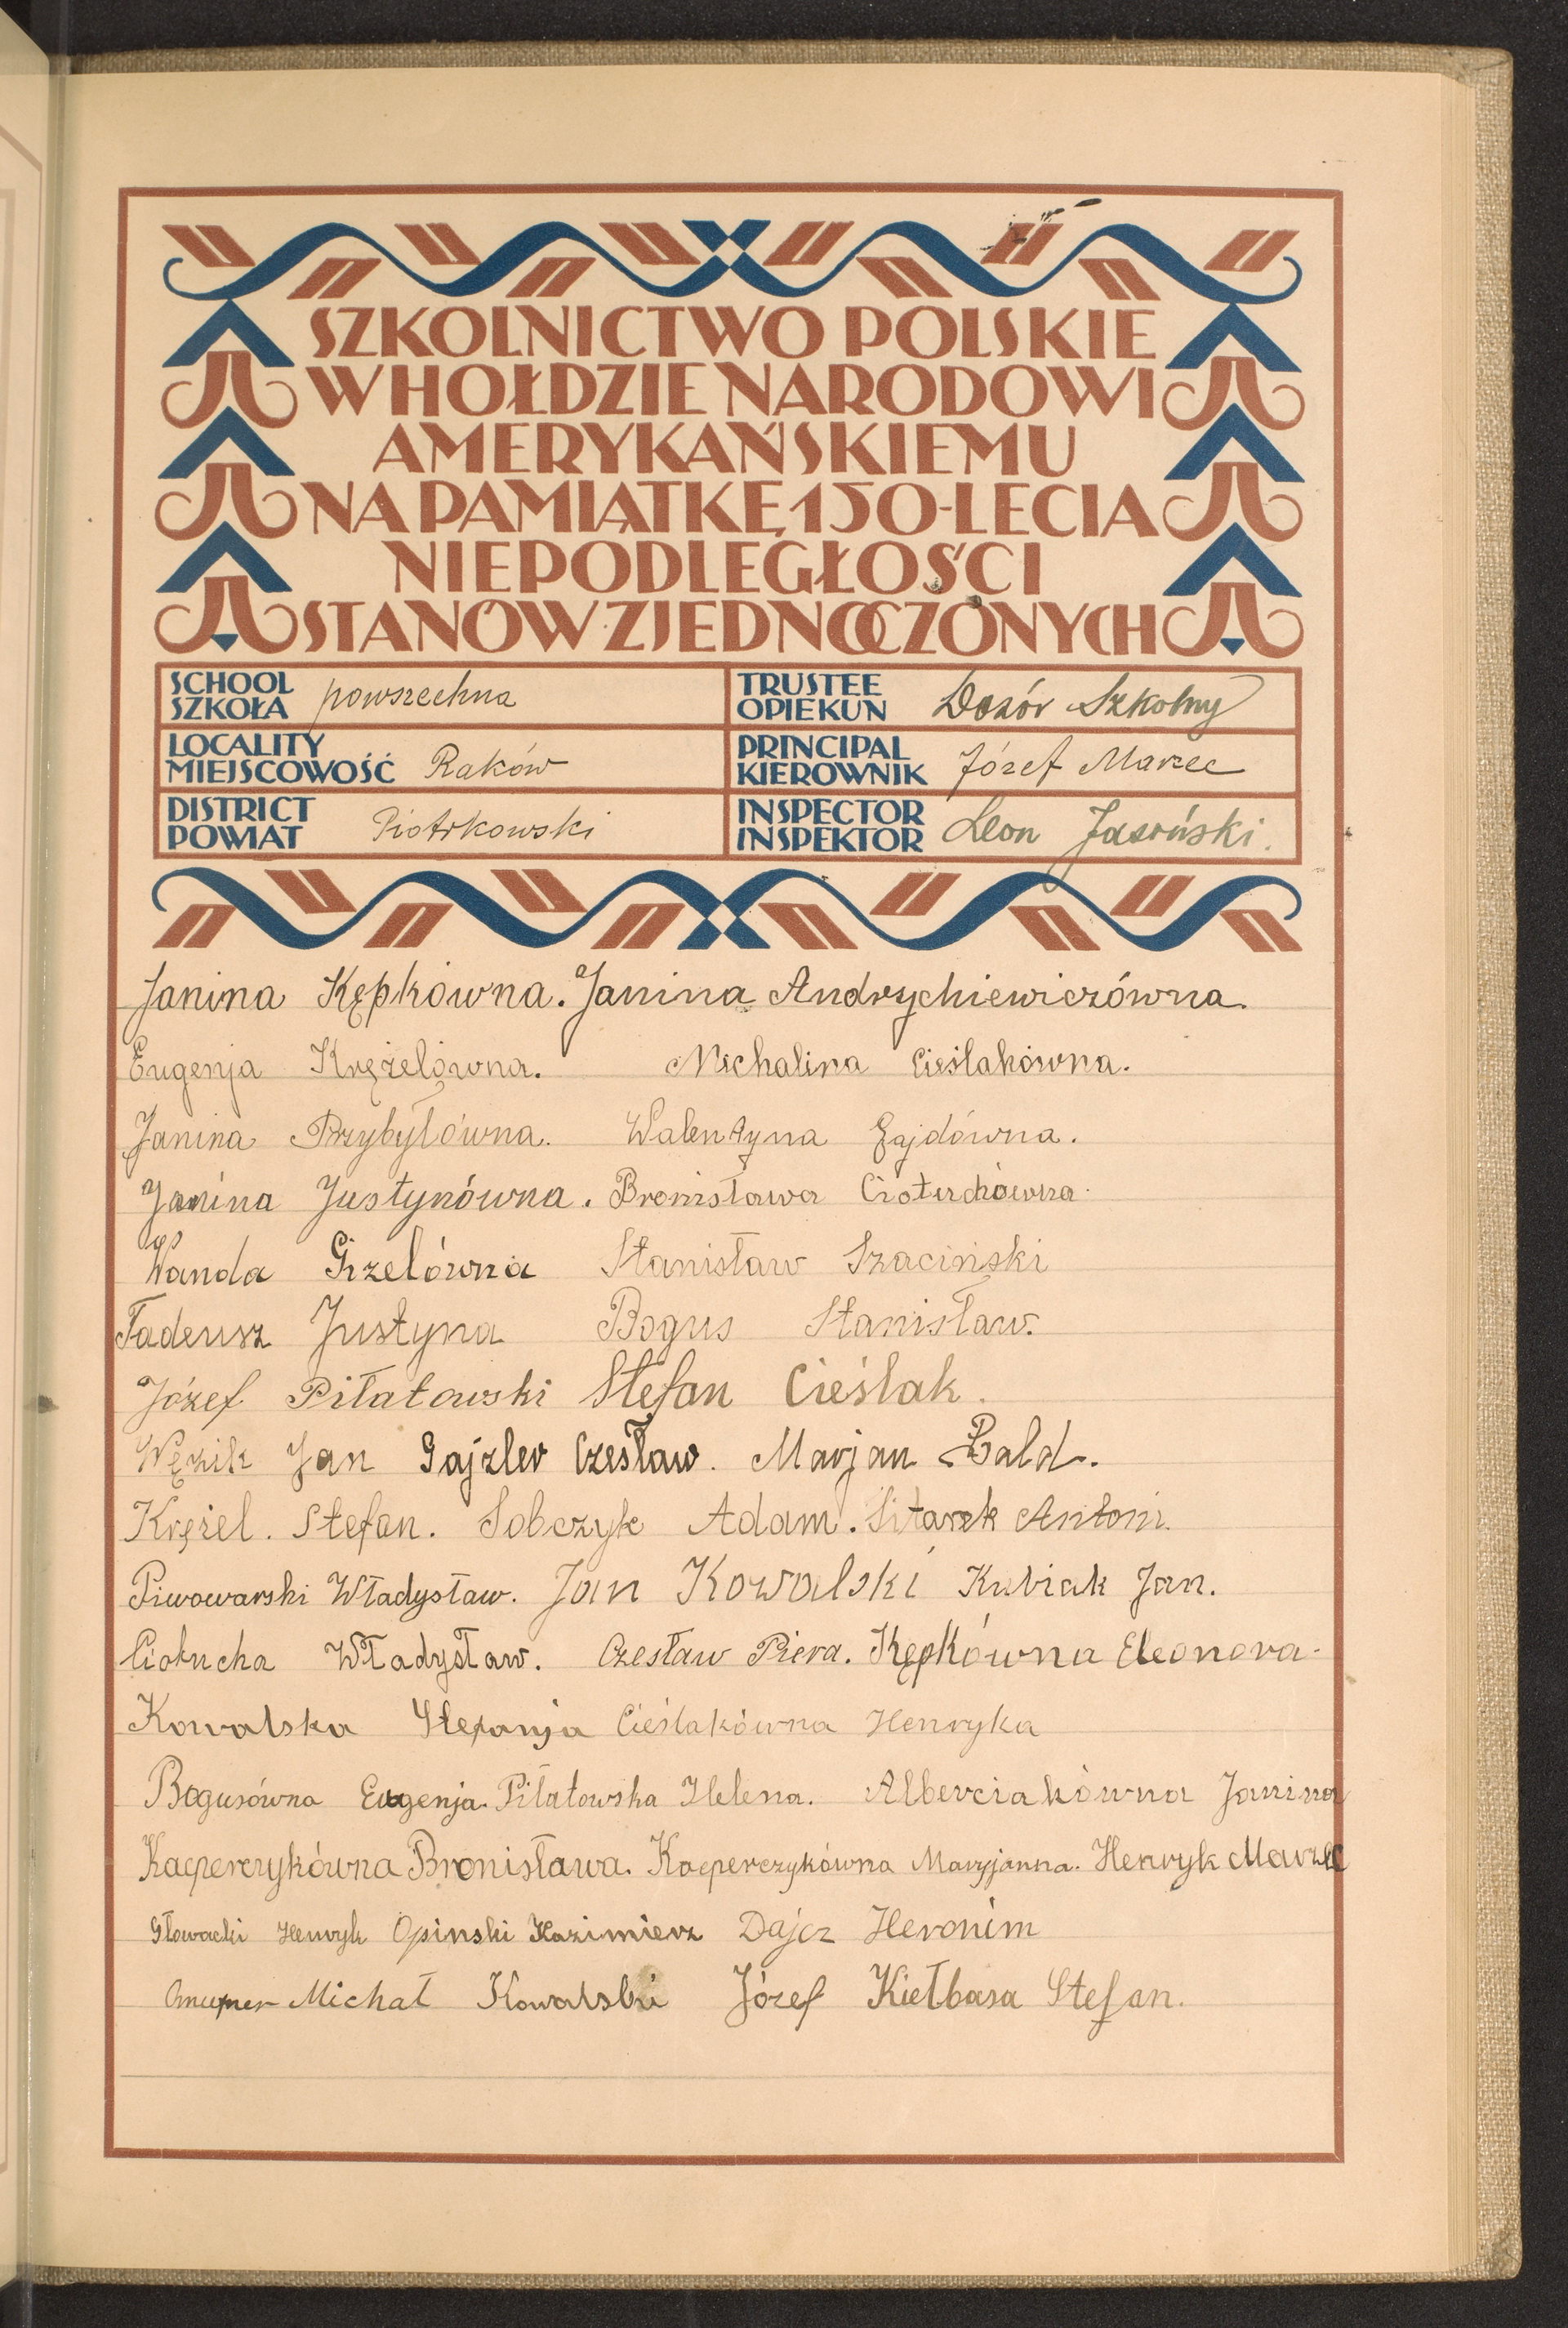 SZKOLNICTWO POLSKIE
W HOŁDZIE NARODOWI
AMERYKAŃSKIEMU
NA PAMIĄTKĘ 150-LECIA
NIEPODLEGŁOŚCI
STANÓW ZJEDNOCZONYCH
SCHOOL SZKOŁA powszechna
TRUSTEE OPIEKUN Dozór Szkolny
LOCALITY MIEJSCOWOŚĆ Raków
PRINCIPAL KIEROWNIK Józef Marzec
DISTRICT POWIAT Piotrkowski
INSPECTOR INSPEKTOR Leon Jasoński.
Janina Kępkówna. Janina Andrychiewiczówna.
Eugenja Krężelówna. Michalina Cieślakówna.
Janina Przybyłówna. Walentyna Gajdówna.
Janina Justynówna. Bronisława Ciołuchówna.
Wanda Gizelówna Stanisław Szaciński
Tadeusz Justyna Bogus Stanisław.
Józef Piłatowski Stefan Cieślak.
Wężik Jan Gajzler Czesław. Marjan Bald.
Krężel. Stefan. Sobczyk Adam. Sitarek Antoni.
Piwowarski Władysław. Jan Kowalski Kubiak Jan.
Ciołucha Władysław. Czesław Piera. Kępkówna Eleonora.
Kowalska Stefanja Cieślakówna Henryka
Bogusówna Eugenja. Piłatowska Helena. Alberciakówna Janina
Kacperczykówna Bronisława. Kacperczykówna Maryjanna. Henryk Marzec
Głowacki Henryk Opinski Kazimierz Dajcz Heronim
Michał Kowalski Józef Kiełbasa Stefan.